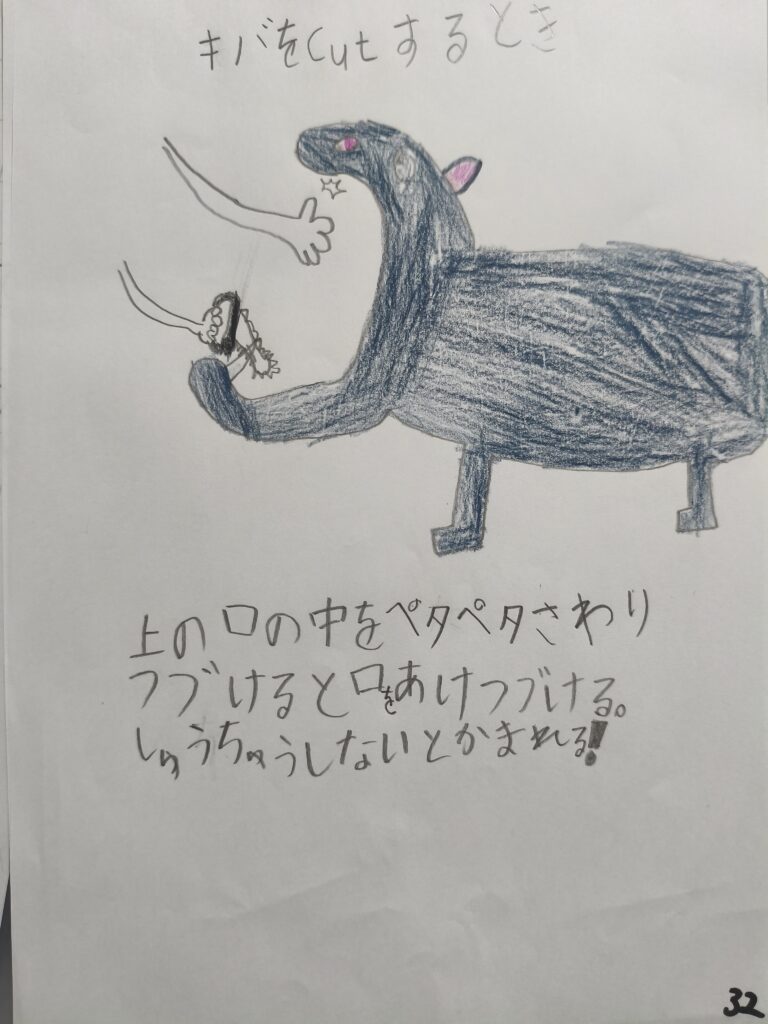 キバをCutするとき
上の口の中をペタペタさわり
つづけると口をあけつづける。
しゅうちゅうしないとかまれる!
32